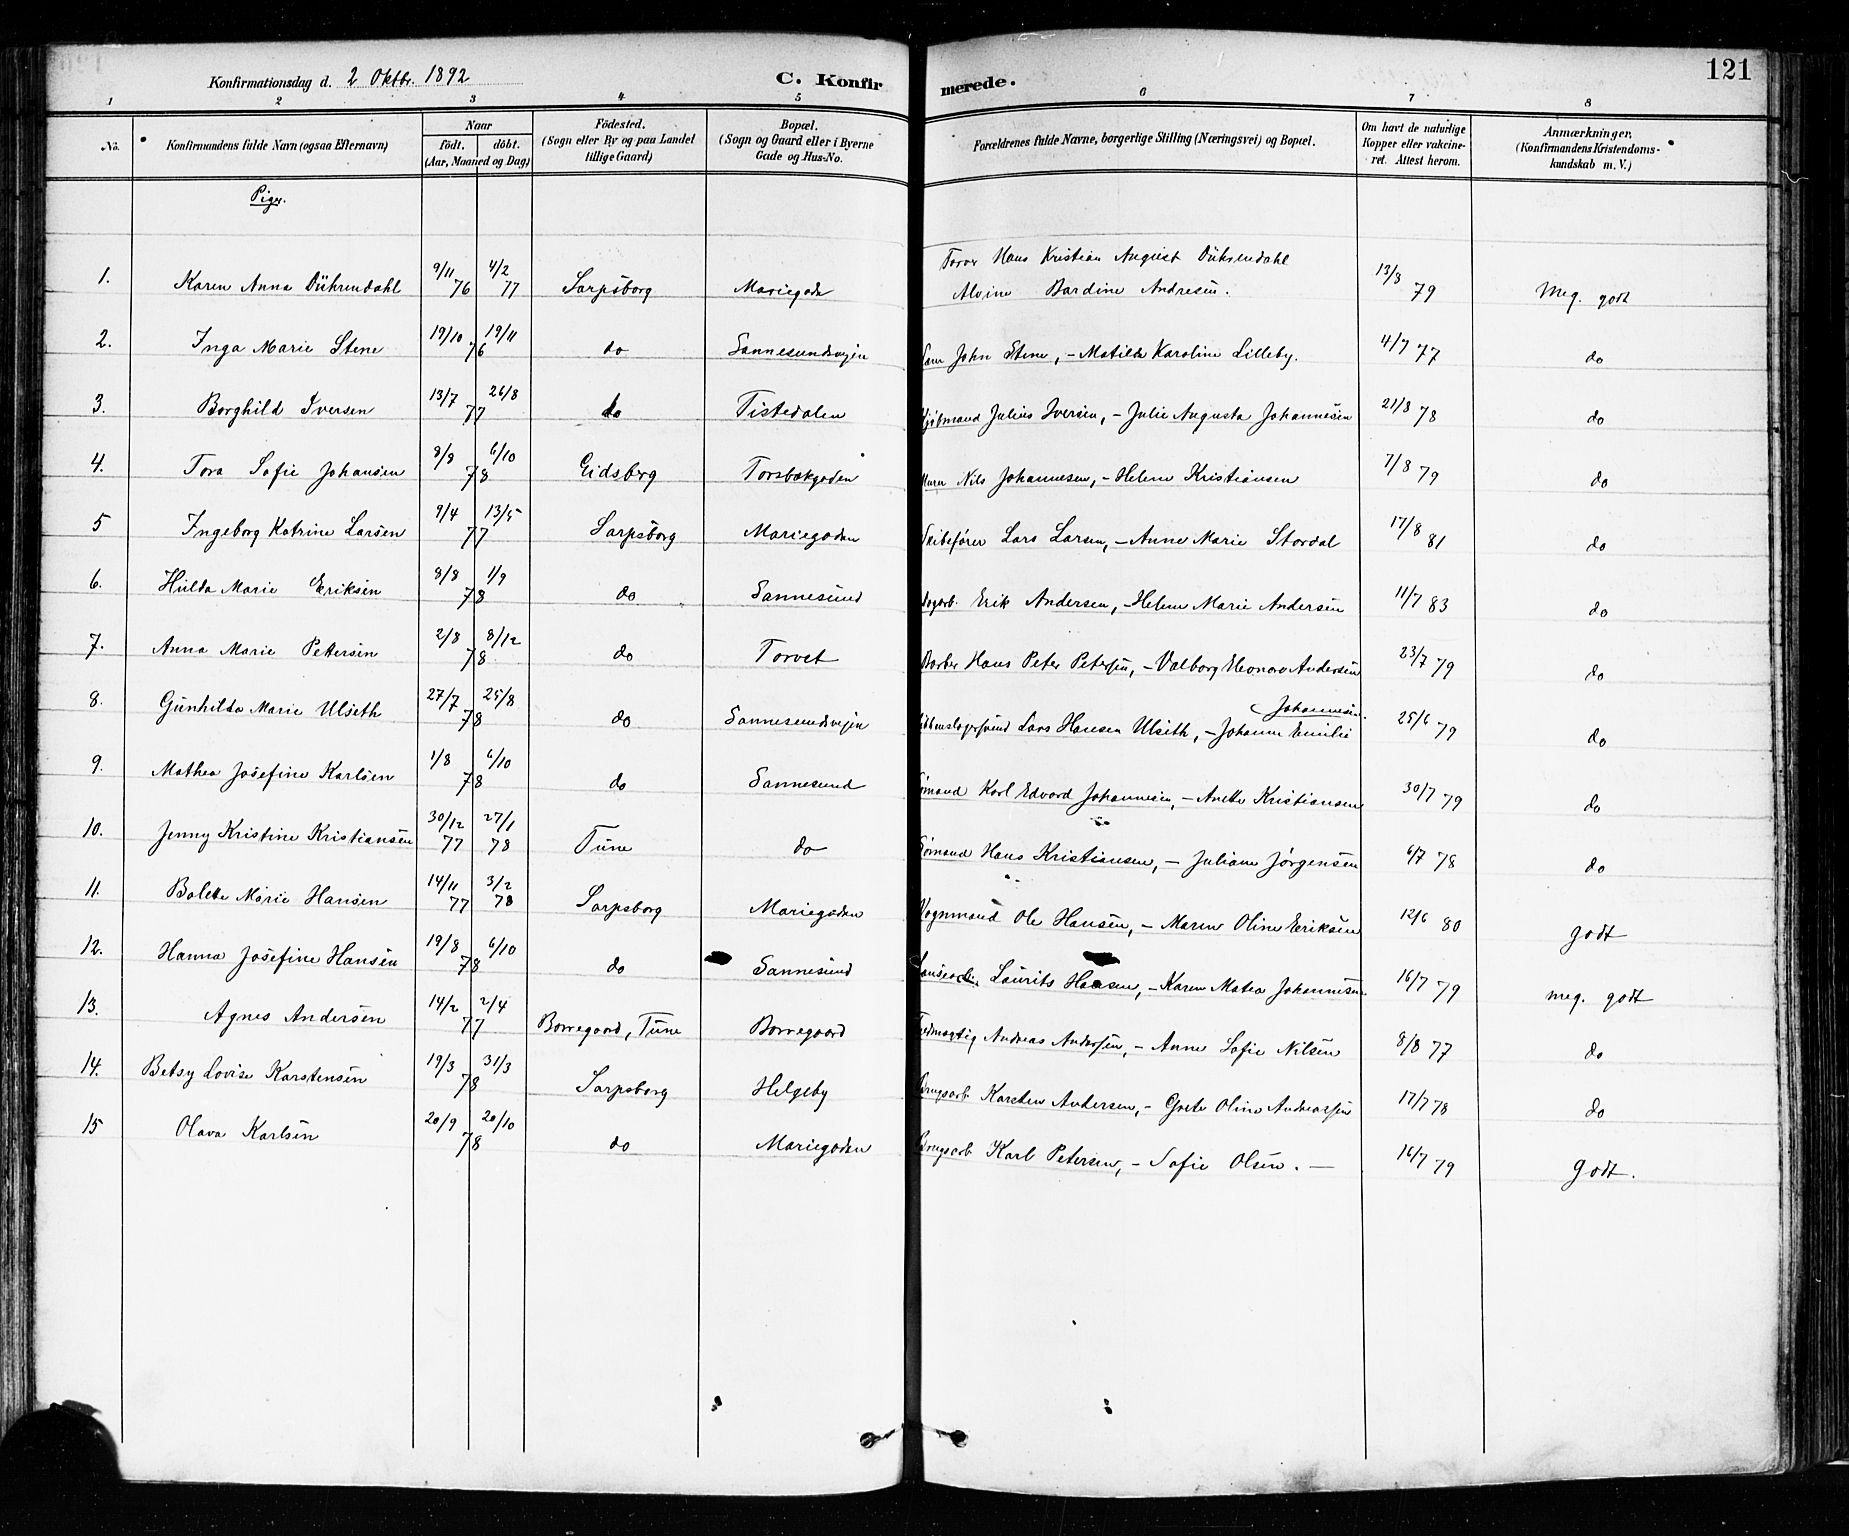 Konfirmationsdag d. 2 Oktbr. 1892 C. Konfirmerede. 121
1 2 3 4 5 6 7 8
No. Konfirmandens fulde Navn (ogsaa Efternavn) Naar födt. döbt. (Aar, Maaned og Dag) Födested. (Sogn eller By og paa Landet tillige Gaard) Bopæl. (Sogn og Gaard eller i Byerne Gade og Hus-No. Forældrenes fulde Navne, borgerlige Stilling (Næringsvei) og Bopæl. Om havt de naturlige Kopper eller vakcineret. Attest herom. Anmærkninger. (Konfirmandens Kristendomskundskab m. V.)
Piger.
1. Karen Anna Dührendahl 9/11 76 4/2 77 Sarpsborg Mariegade Hans Kristian August Dührendahl Alvine Bardine Andresen. 13/8 79 Meg. godt
2. Inga Marie Stene 19/10 19/11 76 do Sannesundsvejen John Stene, - Matilde Karoline Lilleby. 4/7 77 do
3. Borghild Iversen 13/7 26/8 77 do Tistedalen Kjöbmand Julius Iversen, - Julie Augusta Johannesen 21/8 78 do
4. Tora Sofie Johansen 8/8 6/10 78 Eidsberg Torsbækgaden Murer Nils Johannesen, - Helene Kristiansen 7/8 79 do
5 Ingeborg Katrine Larsen 9/4 13/5 77 Sarpsborg Mariegaden Skibsfører Lars Larsen, - Anne Marie Stordal 17/8 81 do
6. Hulda Marie Eriksen 8/8 1/9 78 do Sannesund Dagarb. Erik Andersen, - Helene Marie Andersen 11/7 83 do
7. Anna Marie Pettersen 2/8 8/12 78 do Torvet Barber Hans Peter Petersen, - Valborg Eleonora Andersen 23/7 79 do
8. Gunhilda Marie Ulseth 27/7 25/8 78 do Sannesundsvejen Lars Hansen Ulseth, - Johanne Emilie Johannesen. 25/6 79 do
9. Mathea Josefine Karlsen 1/8 6/10 78 do Sannesund Sømand Karl Edvard Johannesen, - Anette Kristiansen 30/7 79 do
10. Jenny Kristine Kristiansen 30/12 77 27/1 78 Tune do Sømand Hans Kristiansen, - Juliane Jørgensen 6/7 78 do
11. Bolette Marie Hansen 14/11 77 3/2 78 Sarpsborg Mariegaden Vognmand Ole Hansen, - Maren Oline Eriksen 12/6 80 godt
12. Hanna Josefine Hansen 19/8 6/10 78 do Sannesund Laurits Hansen, - Karen Matea Johannesen 16/7 79 meg. godt
13. Agnes Andersen 14/2 2/4 77 Borregaard, Tune Borregaard Andreas Andersen, - Anne Sofie Nilsen 8/8 77 do
14. Betsy Lovise Karstensen 19/3 31/3 78 Sarpsborg Helgeby Brugsarb Karsten Andersen, - Grete Oline Andreassen 17/7 78 do
15 Olava Karlsen 20/9 20/10 78 do Mariegaden Brugsarb Karl Petersen, - Sofie Olsen. — 16/7 79 Godt.